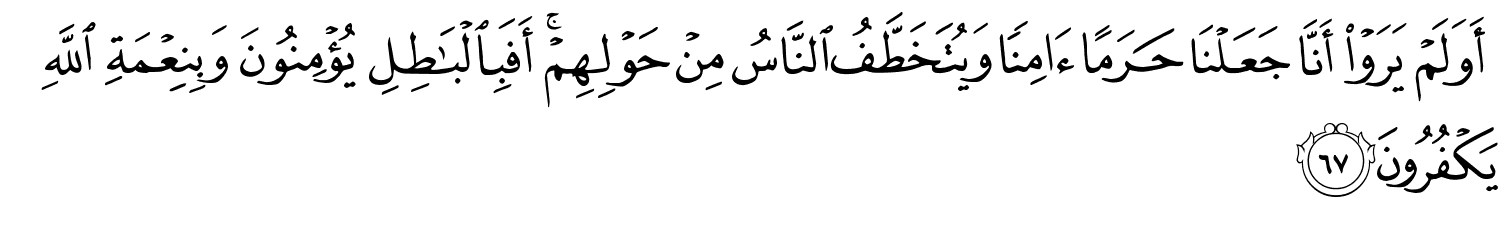 أَوَلَمْ يَرَوْا۟ أَنَّا جَعَلْنَا حَرَمًا ءَامِنًا وَيُتَخَطَّفُ ٱلنَّاسُ مِنْ حَوْلِهِمْ ۚ أَفَبِٱلْبَـٰطِلِ يُؤْمِنُونَ وَبِنِعْمَةِ ٱللَّهِ
يَكْفُرُونَ ٦٧